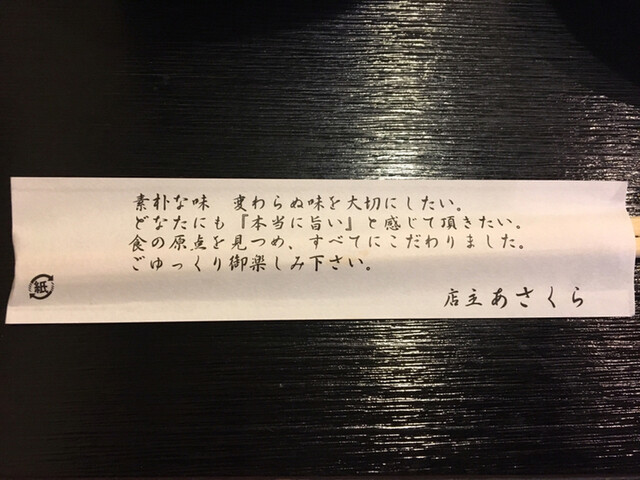 素朴な味　変わらぬ味を大切にしたい。
どなたにも『本当に旨い』と感じて頂きたい。
食の原点を見つめ、すべてにこだわりました。
ごゆっくり御楽しみ下さい。
紙
店主 あさくら